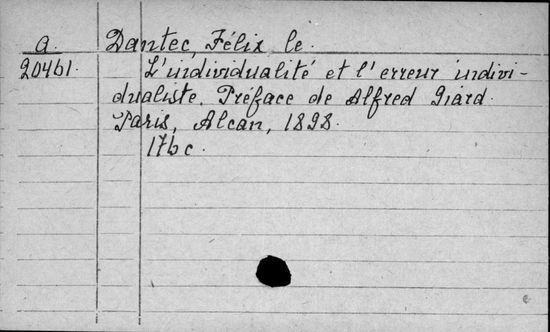 a. Dantec, Félix le.
20461. L'individualité et l'erreur indivi-
dualiste. Préface de Alfred Giard.
Paris, Alcan, 1898.
176 c.